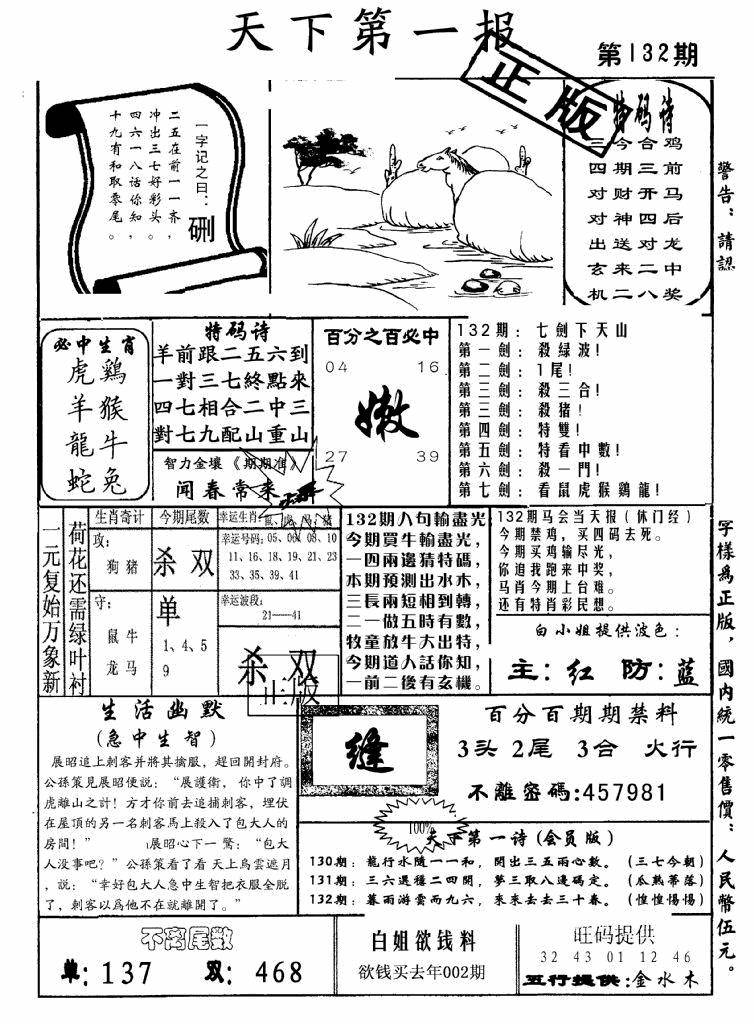 天下第一报
第132期
正版
一字记之曰：
硎
二五在前一一齐，
冲出三七好彩头。
四六一八话你知，
十九有和取零尾。
特码诗
三今合鸡
四期三前
对财开马
对神四后
出送对龙
玄来二中
机二八奖
警告：請認
字樣為正版，國内統一零售價：人民幣伍元。
必中生肖
虎鷄
羊猴
龍牛
蛇兔
特码诗
羊前跟二五六到
一對三七終點來
四七相合二中三
對七九配山重山
智力金壤《期期准》
闻春常来
百分之百必中
04 16
嫩
27 39
132期：七劍下天山
第一劍：殺緑波！
第二劍：1尾！
第三劍：殺三合！
第三劍：殺猪！
第四劍：特雙！
第五劍：特看中數！
第六劍：殺一門！
第七劍：看鼠虎猴鷄龍！
一元复始万象新
荷花还需绿叶衬
生肖奇计
攻：
狗猪
守：
鼠牛
龙马
今期尾数
杀双
单
1、4、5
9
幸运生肖
幸运号码：05、06、08、10
11、16、18、19、21、23
33、35、39、41
幸运波段：
21——41
杀双
正版
132期八句輸盡光
今期買牛輸盡光，
一四兩邊猜特碼，
本期預測出水木，
三長兩短相到轉，
二一做五時有數，
牧童放牛大出特，
今期道人話你知，
一前二後有玄機。
132期马会当天报（休门经）
今期禁鸡，买四码去死。
今期买鸡输尽光，
你追我跑来中奖，
马肖今期上台难。
还有特肖彩民想。
白小姐提供波色：
主：红 防：蓝
生活幽默
（急中生智）
展昭追上刺客并將其擒服，趕回開封府。
公孫策見展昭便説：“展護衛，你中了調
虎離山之計！方才你前去追捕刺客，埋伏
在屋頂的另一名刺客馬上殺入了包大人的
房間！”展昭心下一驚：“包大
人没事吧？”公孫策看了看天上烏雲遮月
，説：“幸好包大人急中生智把衣服全脱
了，刺客以爲他不在就離開了。”
缝
百分百期期禁料
3头 2尾 3合 火行
不離密碼:457981
100%
天下第一诗(会员版)
130期：龍行水随一一和，開出三五兩心數。（三七今朝）
131期：三六選種二四開，夢三取八邊碼定。（瓜熟蒂落）
132期：暮雨游雲而九六，來來去去三十春。（惶惶惕惕）
不离尾数
单：137 双：468
白姐欲钱料
欲钱买去年002期
旺码提供
32 43 01 12 46
五行提供：金水木